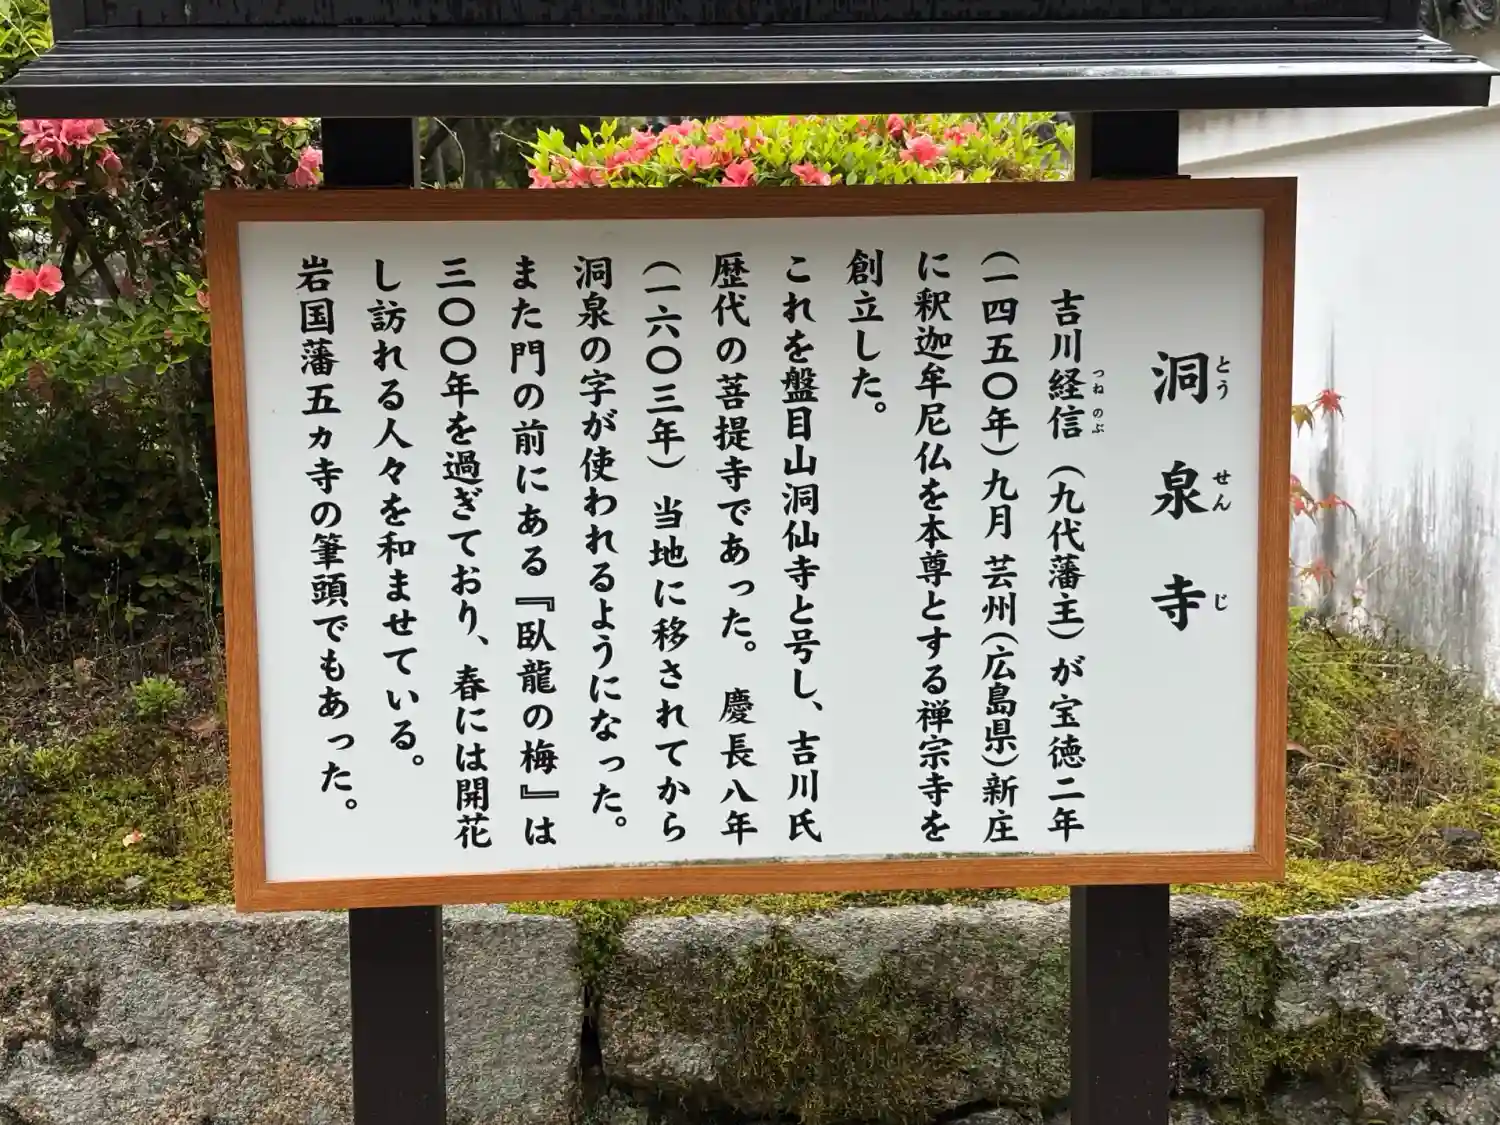 洞泉寺
とうせんじ
吉川経信（九代藩主）が宝徳二年
つねのぶ
（一四五〇年）九月 芸州（広島県）新庄
に釈迦牟尼仏を本尊とする禅宗寺を
創立した。
これを盤目山洞仙寺と号し、吉川氏
歴代の菩提寺であった。 慶長八年
（一六〇三年）当地に移されてから
洞泉の字が使われるようになった。
また門の前にある『臥龍の梅』は
三〇〇年を過ぎており、春には開花
し訪れる人々を和ませている。
岩国藩五ヵ寺の筆頭でもあった。